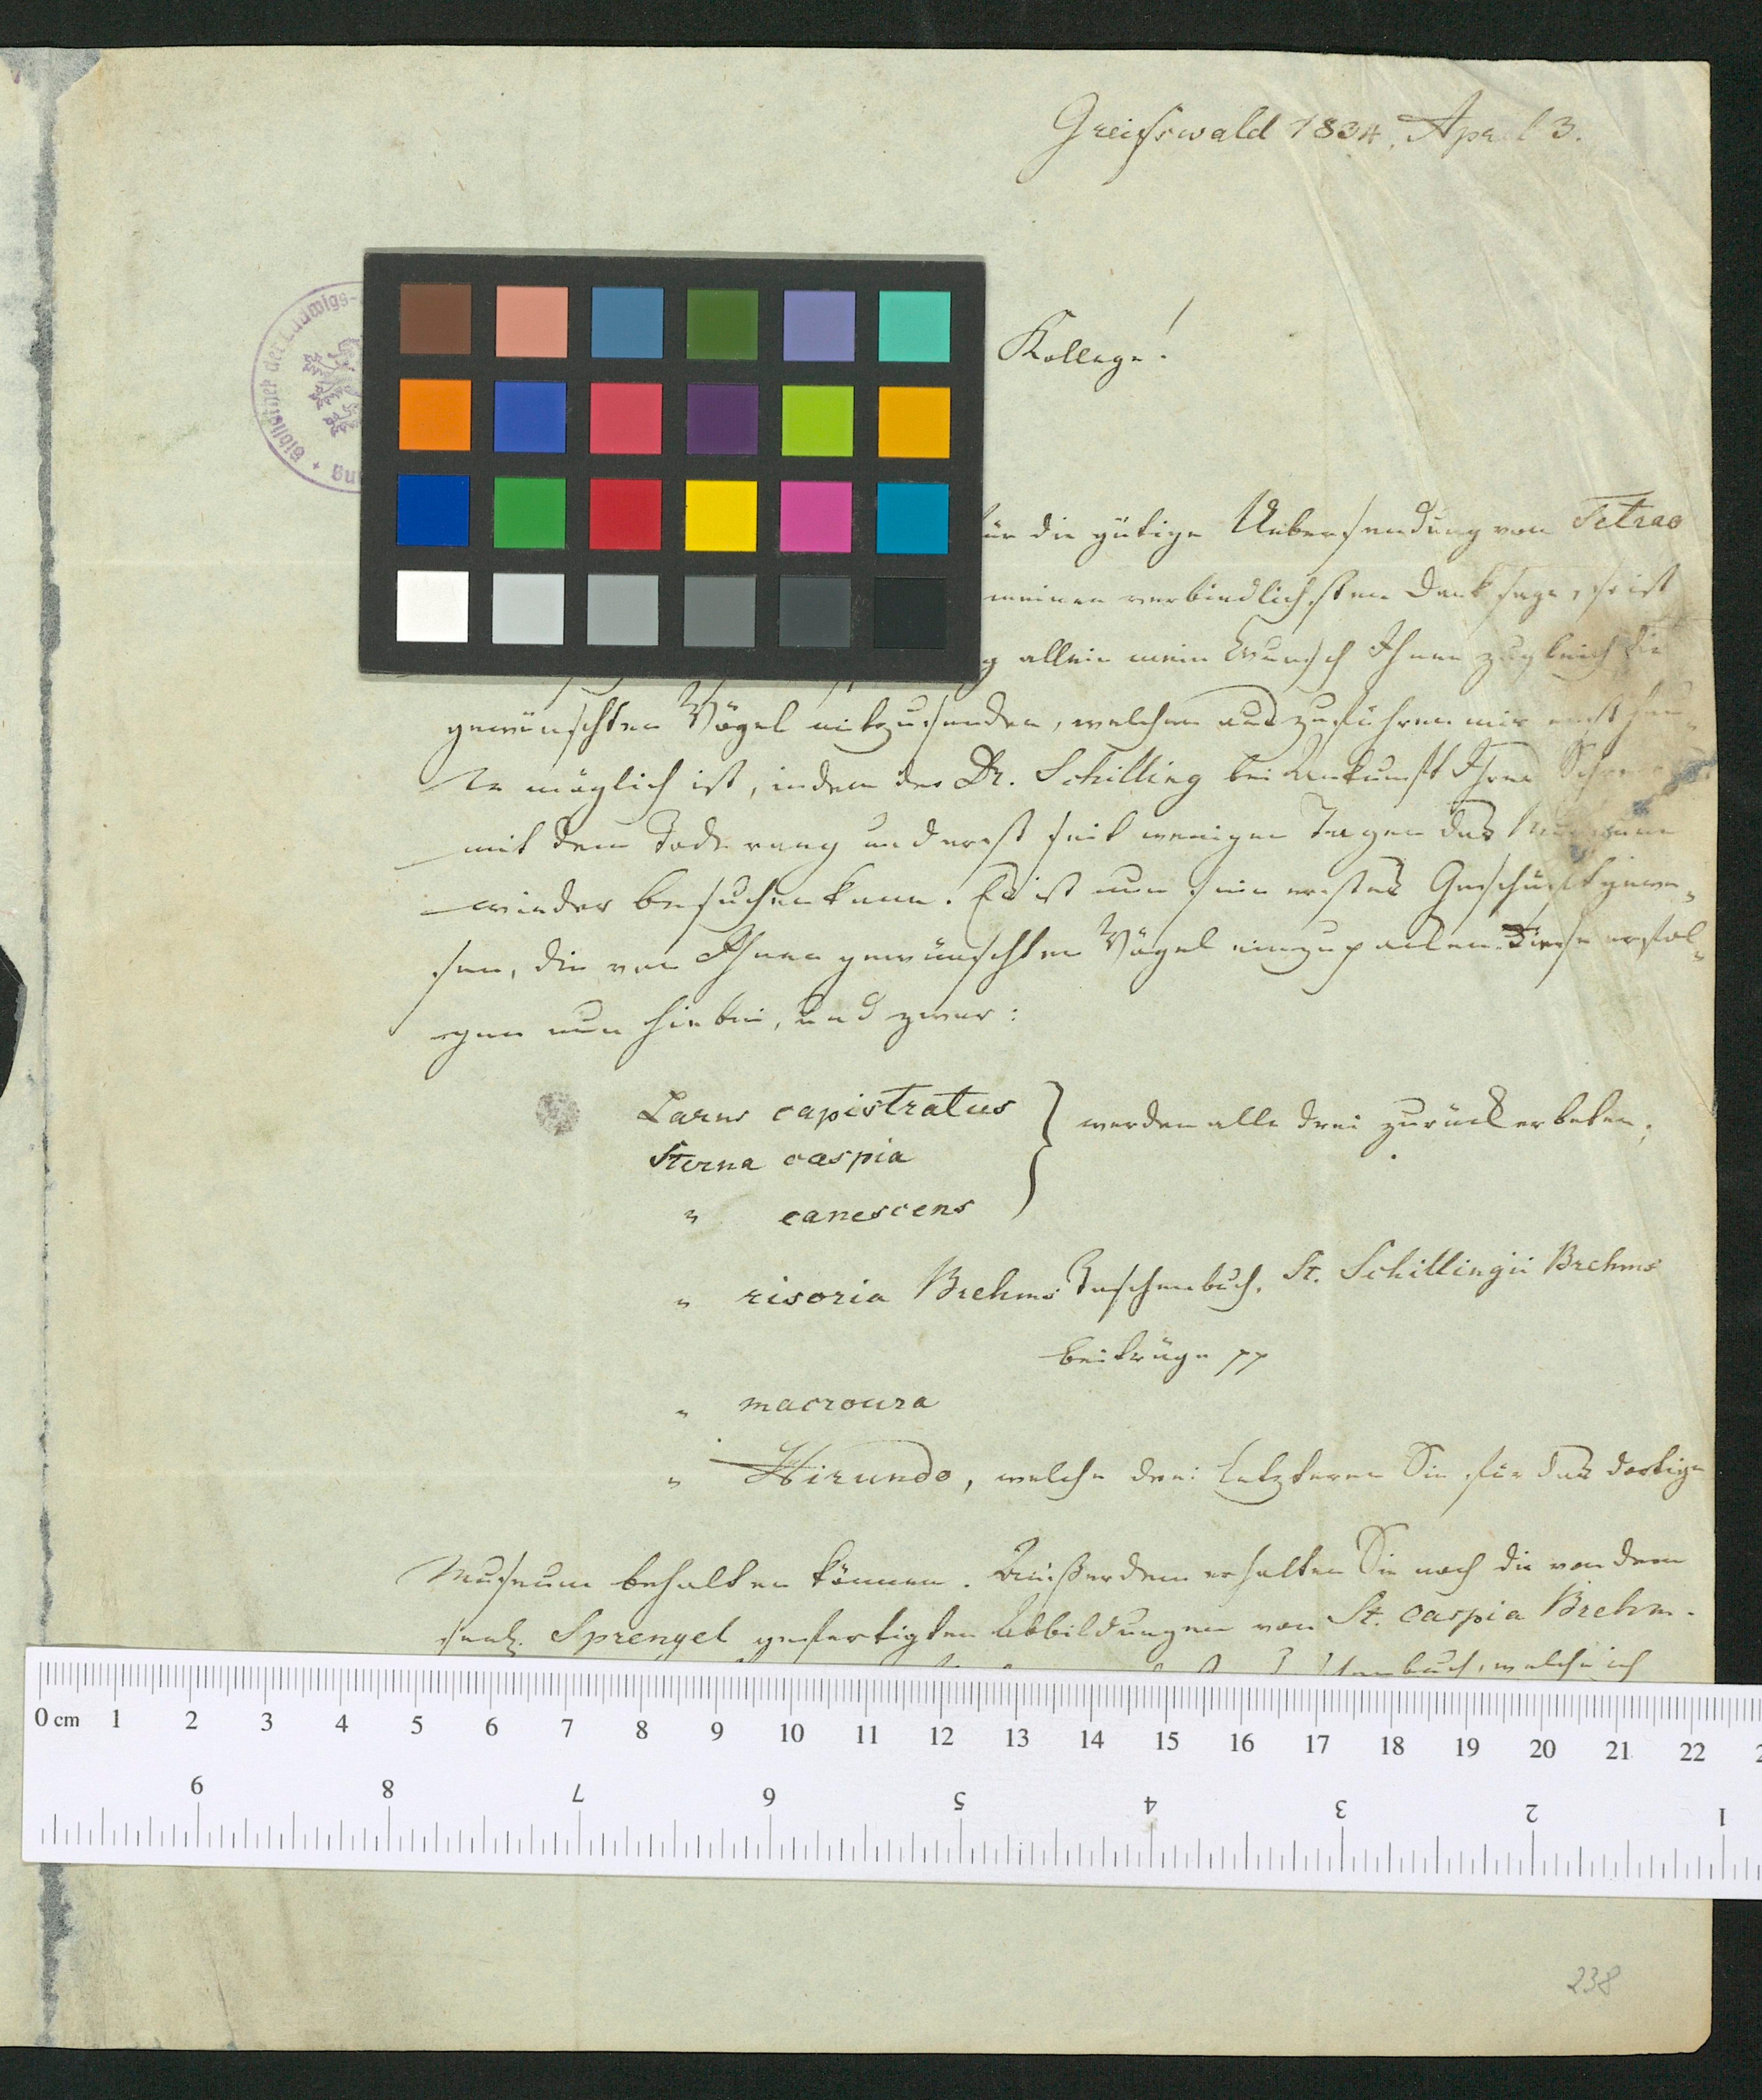 Greifswald 1834, April 3.
Kollege!
für die gütige Uebersendung von Tetrao
meinen verbindlichsten Dank sage, so ist
allein mein Wunsch Ihnen zugleich die
gewünschten Vögel mitzusenden, welchen auszuführen mir erst heu-
te möglich ist, indem der Dr. Schilling bei Ankunft Ihres
mit dem Tode rang und erst seit wenigen Tagen das Museum
wieder besuchen kann. Es ist nun sein erstes Geschäft gewe-
sen, die von Ihnen gewünschten Vögel einzupacken. Diese erfol-
gen nun hiebei, und zwar:
Larus capistratus
Sterna caspia
" canescens
} werden alle drei zurück erbeten;
" risoria Brehms Taschenbuch, St. Schillingii Brehms
Beiträge pp
" macroura
" Hirundo, welche drei Letzteren Sie für das dortige
Museum behalten können. Außerdem erhalten Sie noch die von dem
Sprengel gefertigten Abbildungen von St. caspia Brehm.
welche ich
Bibliothek der Ludwigs-
0 cm 1 2 3 4 5 6 7 8 9 10 11 12 13 14 15 16 17 18 19 20 21 22
9 8 7 6 5 4 3 2 1
238